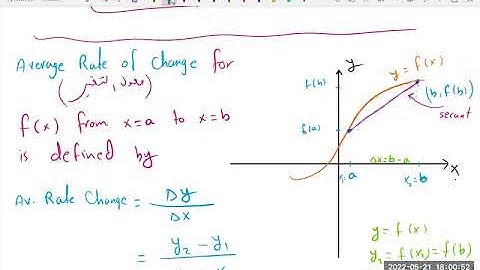 Average Rate of Change for
(معدل التغير)
f(x) from x=a to x=b
is defined by
Av. Rate Change = Δy
Δx
= y₂ − y₁
y
y = f(x)
f(b)
(b, f(b))
secant
f(a)
Δx = b-a
x
a
x₂=b
y = f(x)
y₂ = f(x₂) = f(b)
2022-06-21 18:00:52